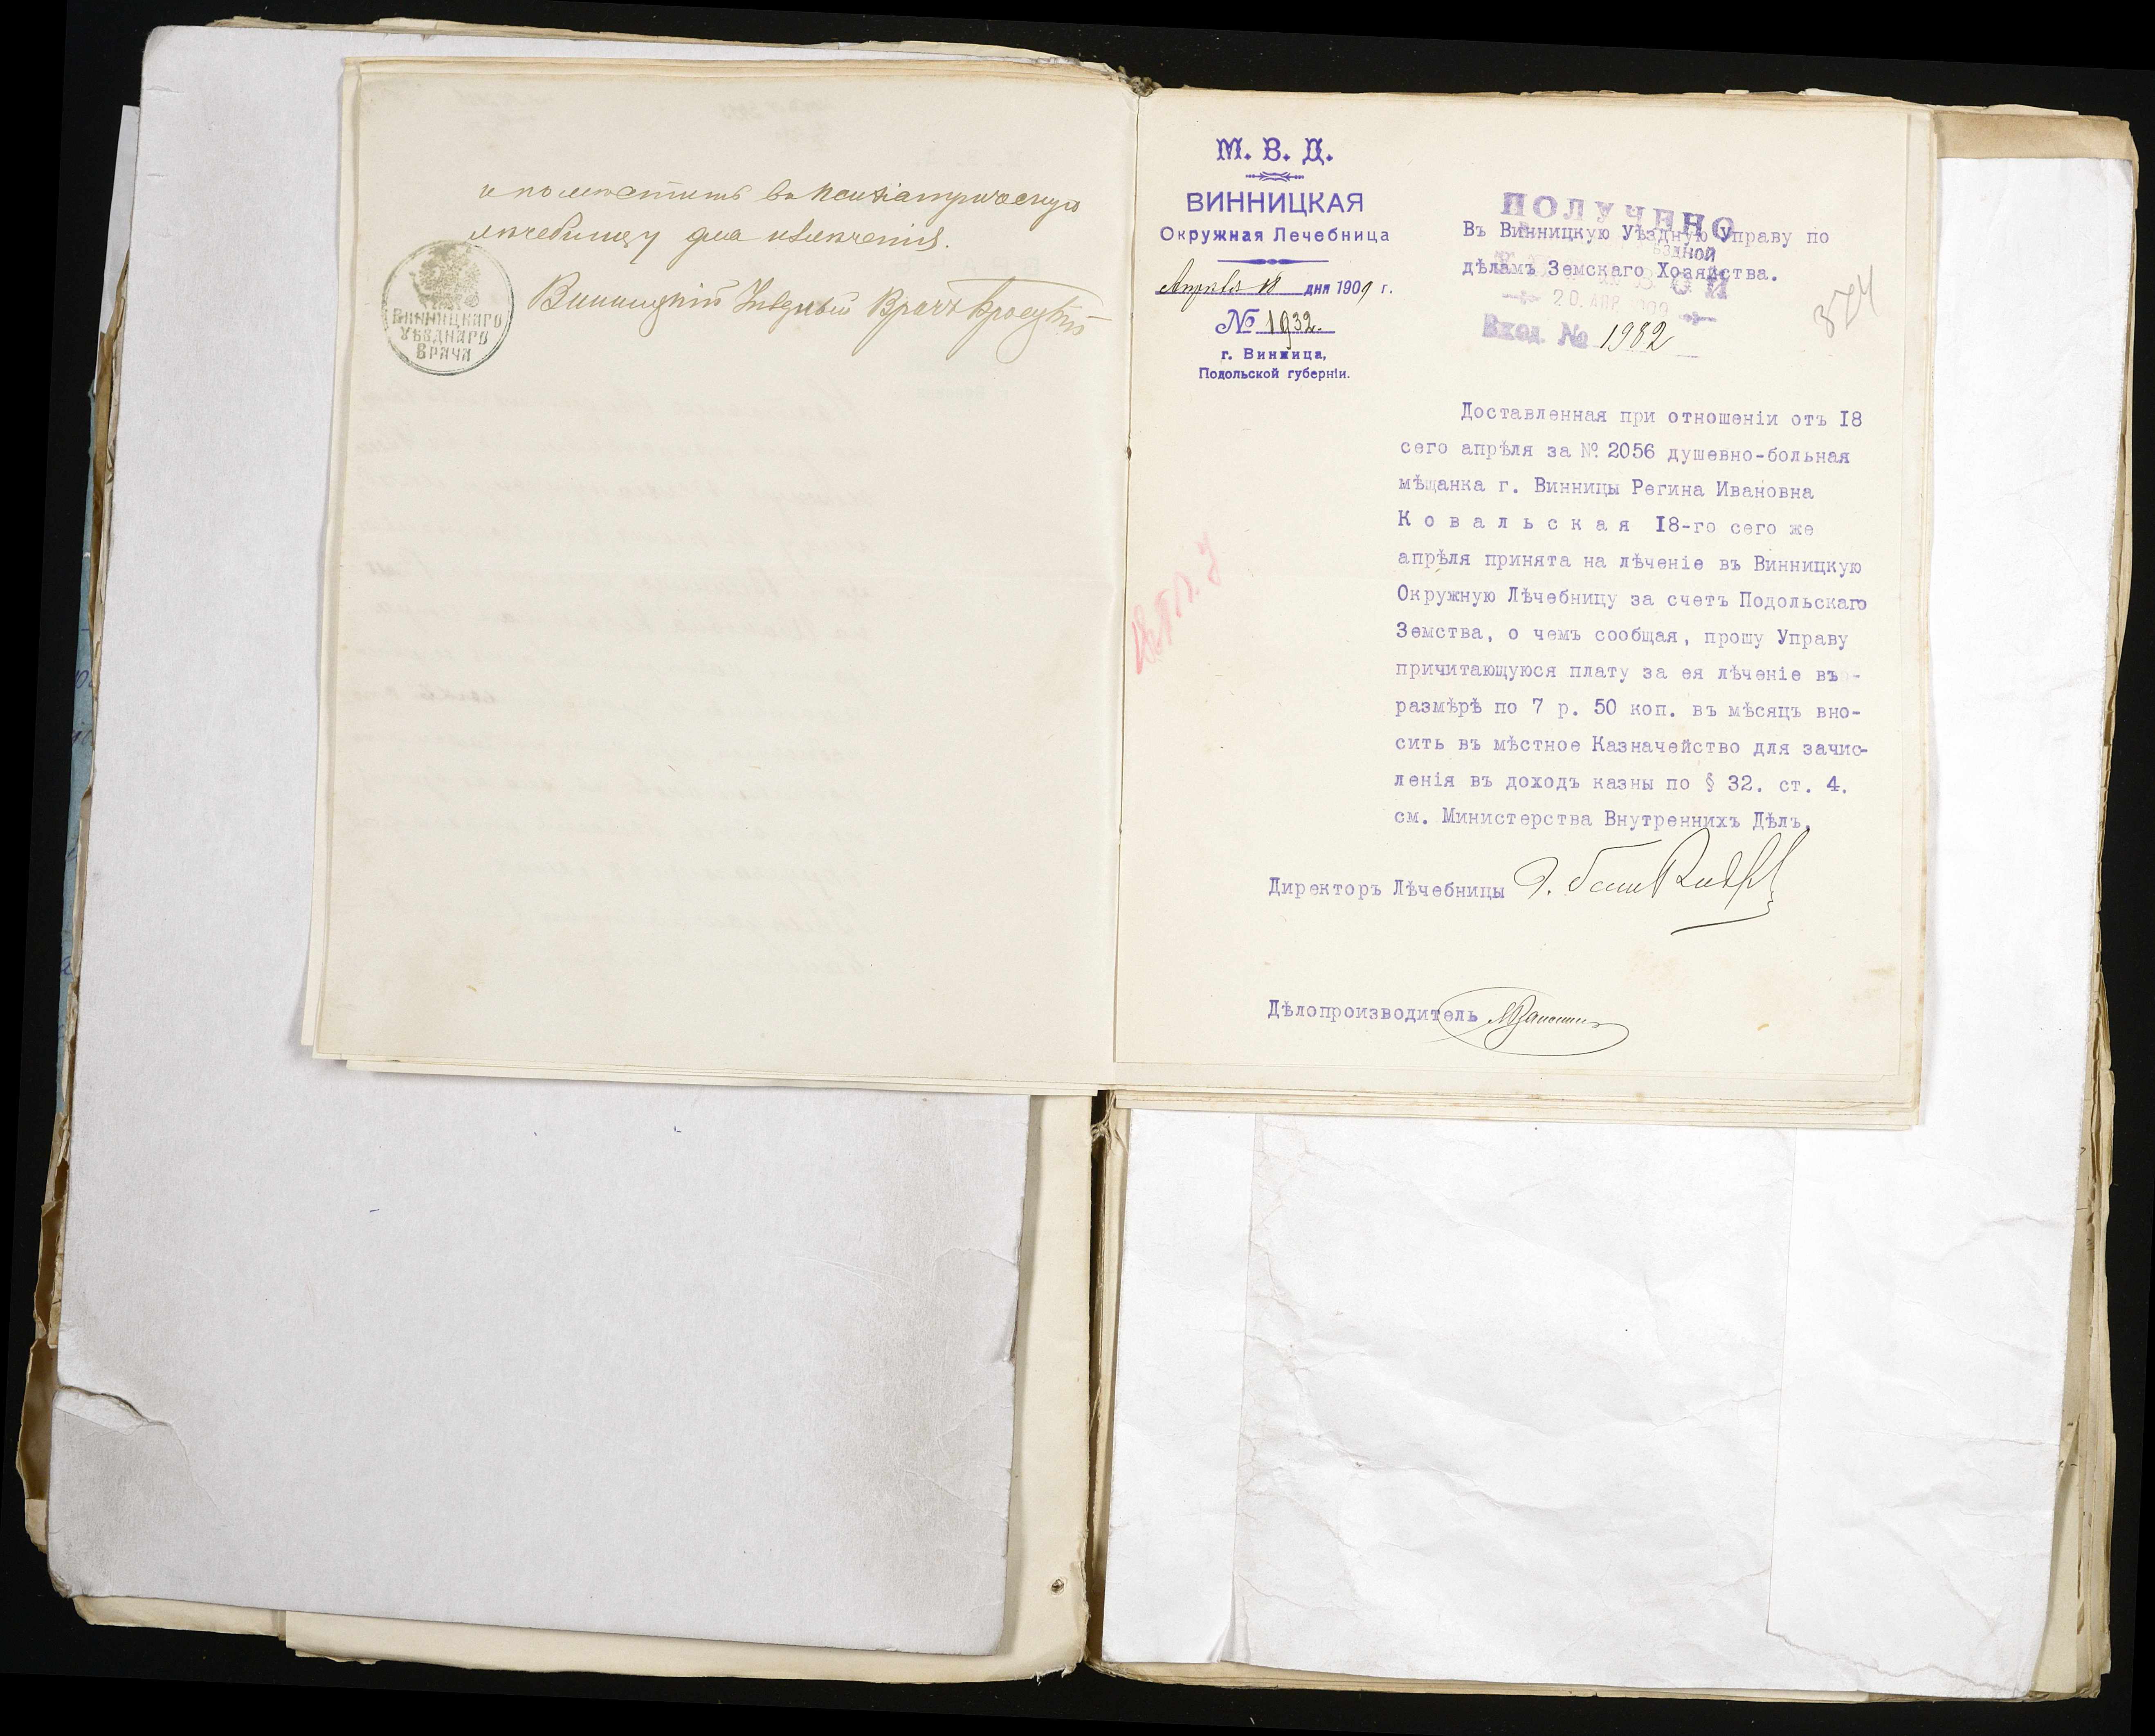 и помѣстить въ психіатрическую
лѣчебницу для излѣченія.
Винницкій Уѣздный Врачъ
ВИННИЦКАГО
УѢЗДНАГО
ВРАЧА
М. В. Д.
ВИННИЦКАЯ
Окружная Лечебница
Апрѣля 18 дня 1909 г.
№ 1932.
г. Винница,
Подольской губерніи.
ПОЛУЧЕНО
Въ Винницкую Уѣздную Управу по
дѣламъ Земскаго Хозяйства.
20 АПР 1909
Вход. № 1982
374
Доставленная при отношеніи отъ I8
сего апрѣля за № 2056 душевно-больная
мѣщанка г. Винницы Регина Ивановна
К о в а л ь с к а я I8-го сего же
апрѣля принята на лѣченіе въ Винницкую
Окружную Лѣчебницу за счетъ Подольскаго
Земства, о чемъ сообщая, прошу Управу
причитающуюся плату за ея лѣченіе въ
размѣрѣ по 7 р. 50 коп. въ мѣсяцъ вно-
сить въ мѣстное Казначейство для зачис-
ленія въ доходъ казны по § 32. ст. 4.
см. Министерства Внутреннихъ Дѣлъ.
Директоръ Лѣчебницы
Дѣлопроизводитель